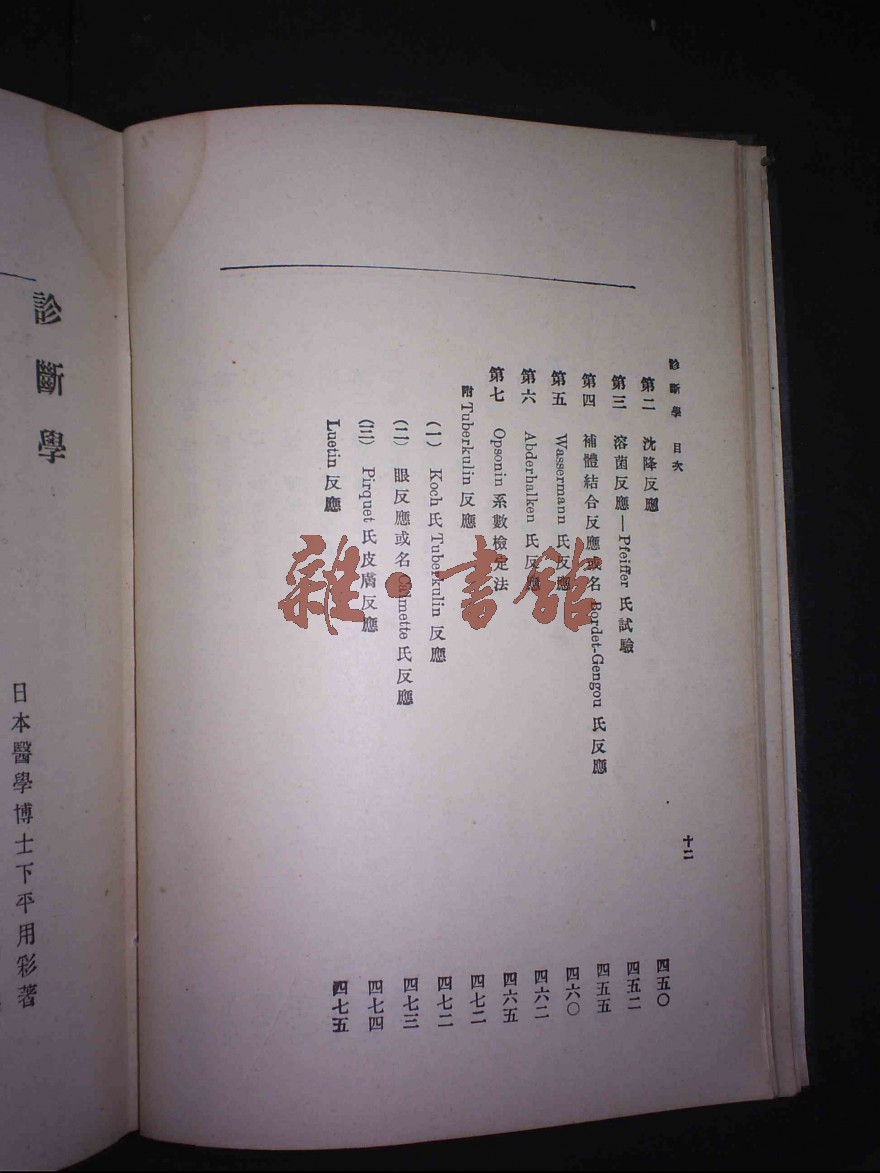 診斷學 目次
十二
第二 沈降反應 四五〇
第三 溶菌反應—Pfeiffer 氏試驗 四五二
第四 補體結合反應或名 Bordet-Gengou 氏反應 四五五
第五 Wassermann 氏反應 四六〇
第六 Abderhalken 氏反應 四六二
第七 Opsonin 系數檢定法 四六五
附 Tuberkulin 反應 四七二
(一) Koch 氏 Tuberkulin 反應 四七二
(二) 眼反應或名 Calmette 氏反應 四七三
(三) Pirquet 氏皮膚反應 四七四
Luetin 反應 四七五
診斷學
日本醫學博士下平用彩著
雜·書館